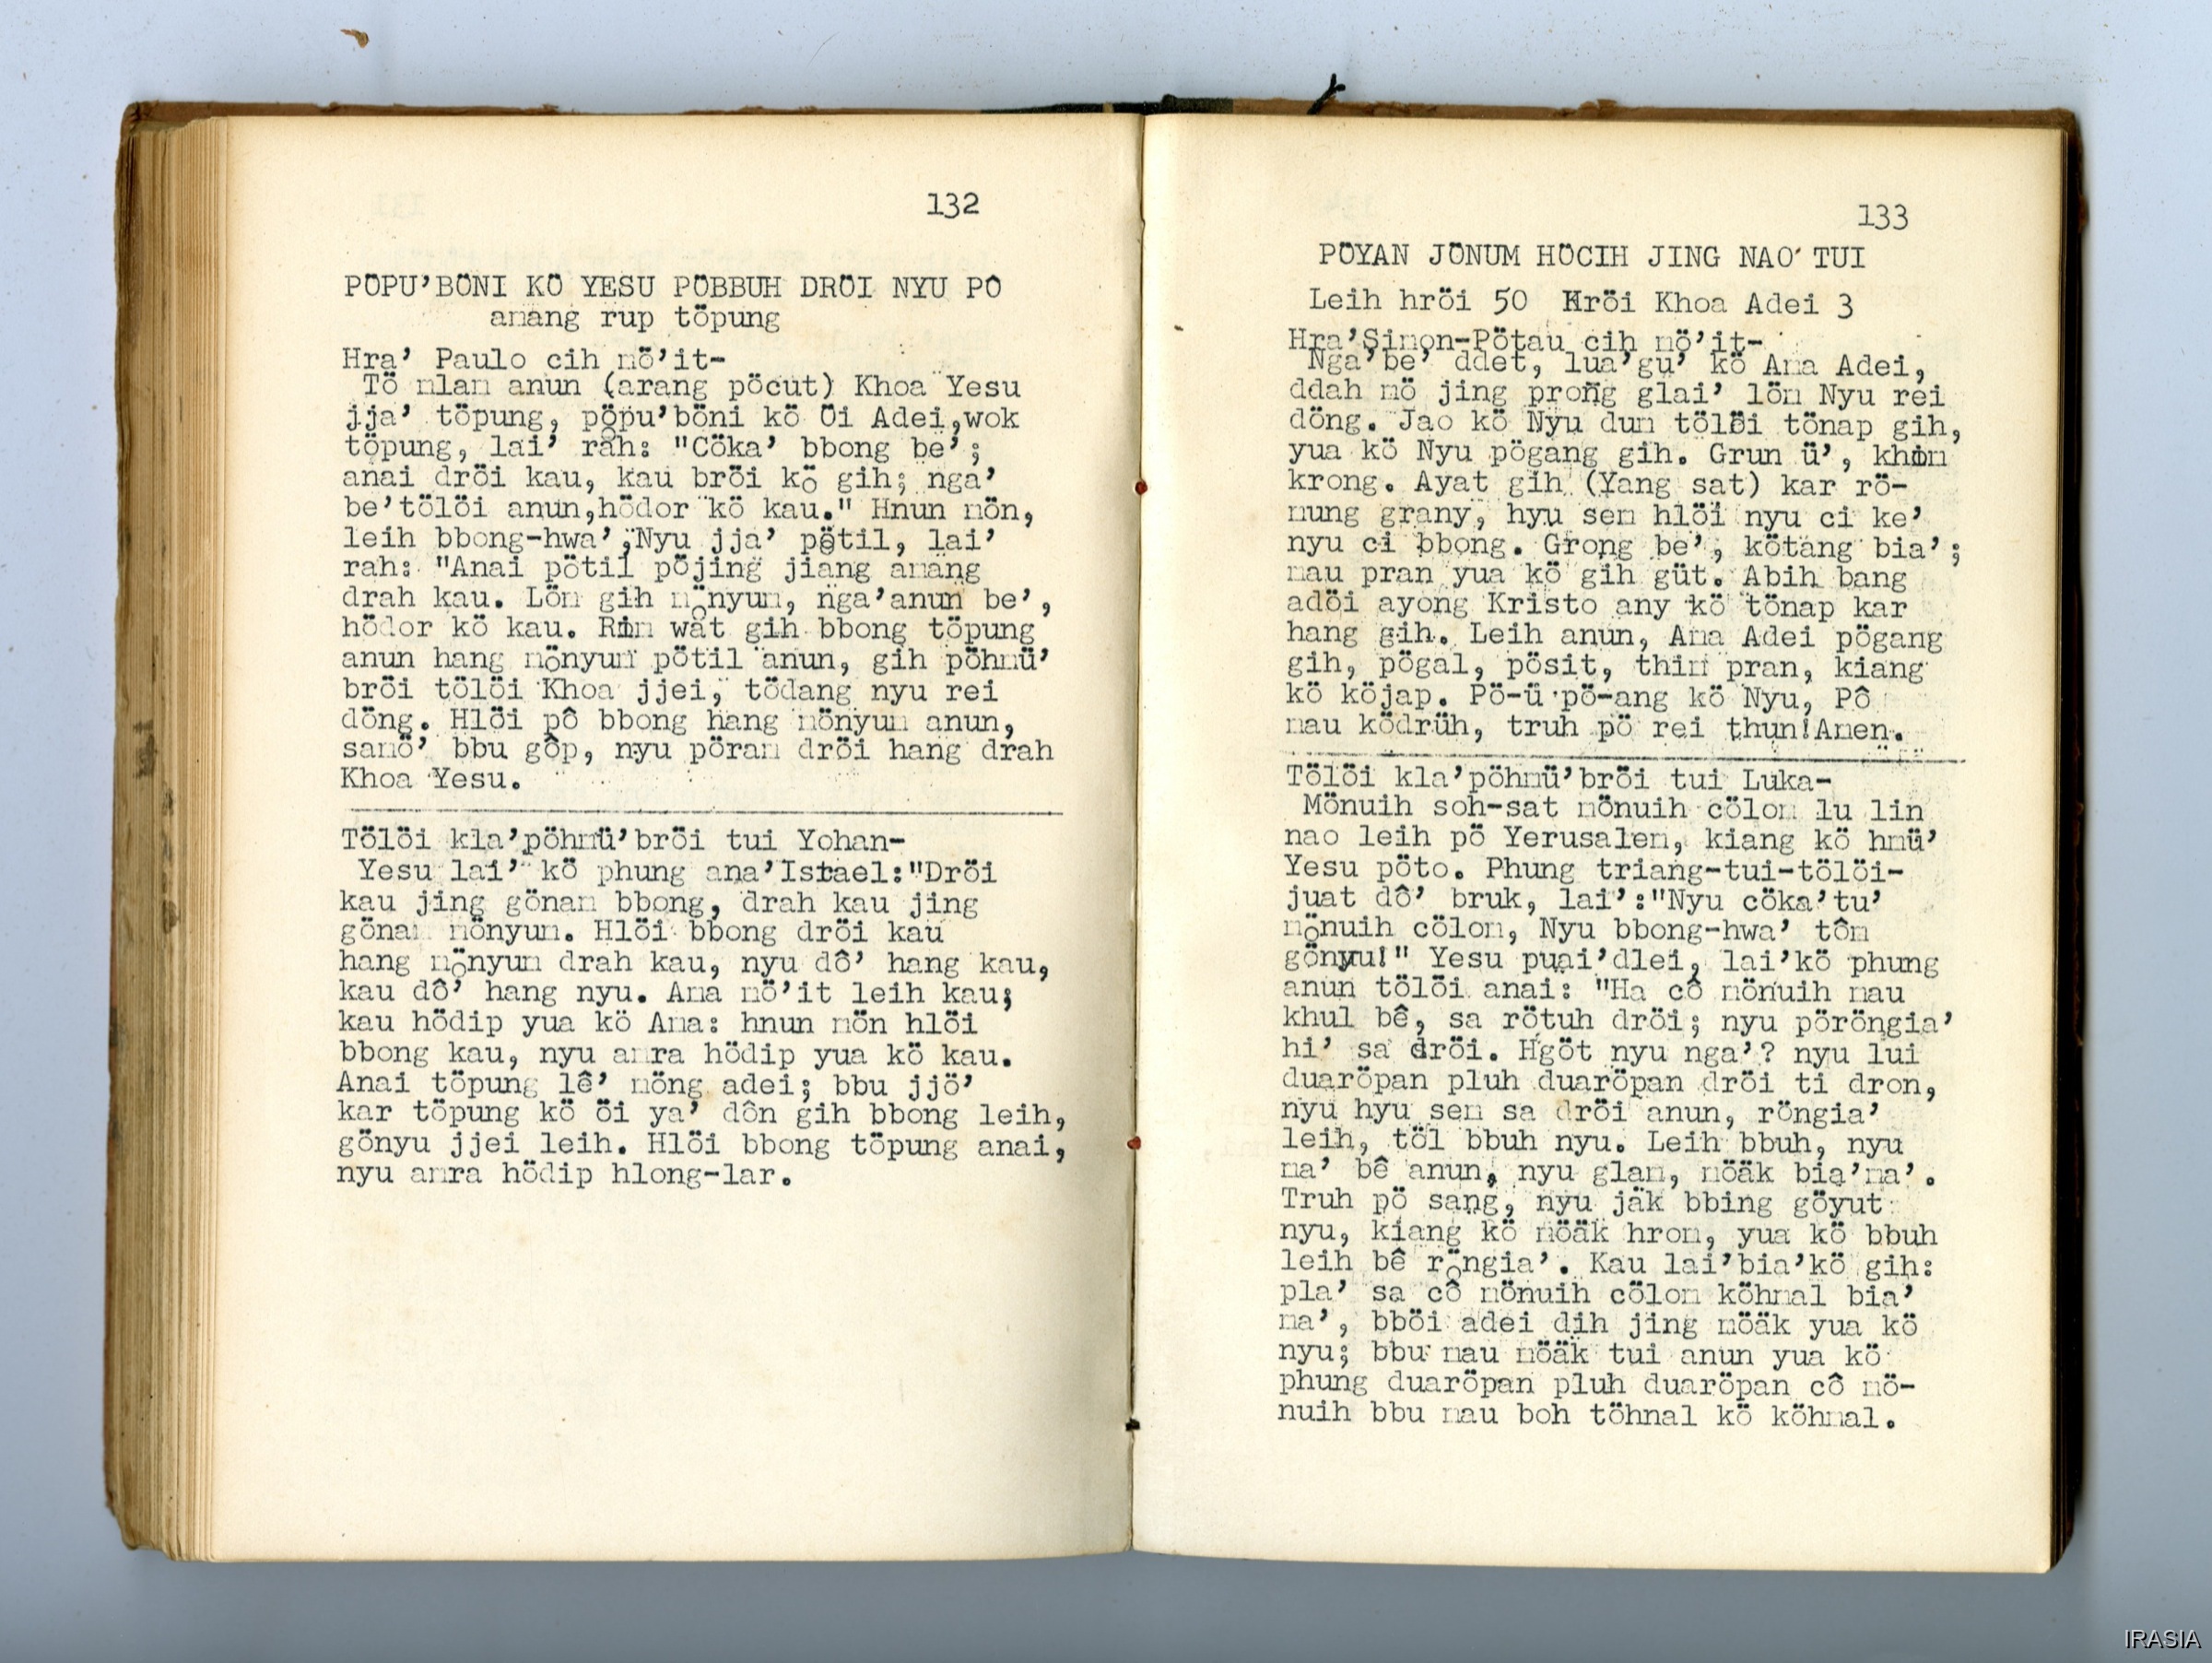 132
PÖPU’BÖNI KÖ YESU PÖBBUH DRÖI NYU PÔ
amang rup töpung
Hra’ Paulo cih mö’it-
Tö mlam anun (arang pöcut) Khoa Yesu
jja’ töpung, pöpu’böni kö Öi Adei,wok
töpung, lai’ rah: "Cöka’ bbong be’;
anai dröi kau, kau bröi kö gih; nga’
be’tölöi anun,hödor kö kau." Hnun mön,
leih bbong-hwa’,Nyu jja’ pötil, lai’
rah: "Anai pötil pöjing jiang amang
drah kau. Löm gih mönyum, nga’anun be’,
hödor kö kau. Rim wat gih bbong töpung
anun hang mönyum pötil anun, gih pöhmü’
bröi tölöi Khoa jjei, tödang nyu rei
döng. Hlöi pô bbong hang mönyum anun,
samö’ bbu göp, nyu pöram dröi hang drah
Khoa Yesu.
Tölöi kla’pöhmü’bröi tui Yohan-
Yesu lai’ kö phung ana’Israel:"Dröi
kau jing gönam bbong, drah kau jing
gönam mönyum. Hlöi bbong dröi kau
hang mönyum drah kau, nyu dô’ hang kau,
kau dô’ hang nyu. Ama mö’it leih kau;
kau hödip yua kö Ama: hnun mön hlöi
bbong kau, nyu amra hödip yua kö kau.
Anai töpung lê’ möng adei; bbu jjö’
kar töpung kö öi ya’ dôn gih bbong leih,
gönyu jjei leih. Hlöi bbong töpung anai,
nyu amra hödip hlong-lar.
133
PÖYAN JÖNUM HÖCIH JING NAO’ TUI
Leih hröi 50 Hröi Khoa Adei 3
Hra’Simon-Pötau cih mö’it-
Nga’be’ ddet, lua’gu’ kö Ama Adei,
ddah mö jing prong glai’ löm Nyu rei
döng. Jao kö Nyu dum tölöi tönap gih,
yua kö Nyu pögang gih. Grun ü’, khim
krong. Ayat gih (Yang sat) kar rö-
mung grany, hyu sem hlöi nyu ci ke’
nyu ci bbong. Grong be’, kötang bia’;
mau pran yua kö gih güt. Abih bang
adöi ayong Kristo any kö tönap kar
hang gih. Leih anun, Ama Adei pögang
gih, pögal, pösit, thim pran, kiang
kö köjap. Pö-ü pö-ang kö Nyu, Pô
mau ködrüh, truh pö rei thun!Amen.
Tölöi kla’pöhmü’bröi tui Luka-
Mönuih soh-sat mönuih cölom lu lin
nao leih pö Yerusalem, kiang kö hmü’
Yesu pöto. Phung triang-tui-tölöi-
juat dô’ bruk, lai’:"Nyu cöka’tu’
mönuih cölom, Nyu bbong-hwa’ tôm
gönyu!" Yesu puai’dlei, lai’kö phung
anun tölöi anai: "Ha cô mönuih mau
khul bê, sa rötuh dröi; nyu pöröngia’
hi’ sa dröi. Hgöt nyu nga’? nyu lui
duaröpan pluh duaröpan dröi ti dron,
nyu hyu sem sa dröi anun, röngia’
leih, töl bbuh nyu. Leih bbuh, nyu
ma’ bê anun, nyu glam, möäk bia’ma’.
Truh pö sang, nyu jäk bbing göyut
nyu, kiang kö möäk hrom, yua kö bbuh
leih bê röngia’. Kau lai’bia’kö gih:
pla’ sa cô mönuih cölom köhmal bia’
ma’, bböi adei dih jing möäk yua kö
nyu; bbu mau möäk tui anun yua kö
phung duaröpan pluh duaröpan cô mö-
nuih bbu mau boh töhnal kö köhmal.
IRASIA